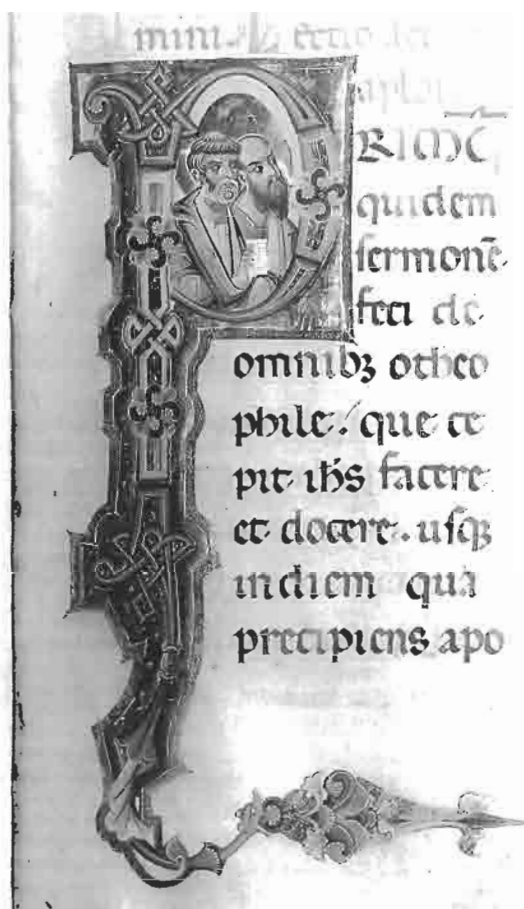 mini. Lectio act
apłor
PRIMŪ
quidem
sermonē
feci de
omnibꝫ otheo
phile. que ce
pit ihs facere
et docere. usqꝫ
in diem qua
precipiens apo